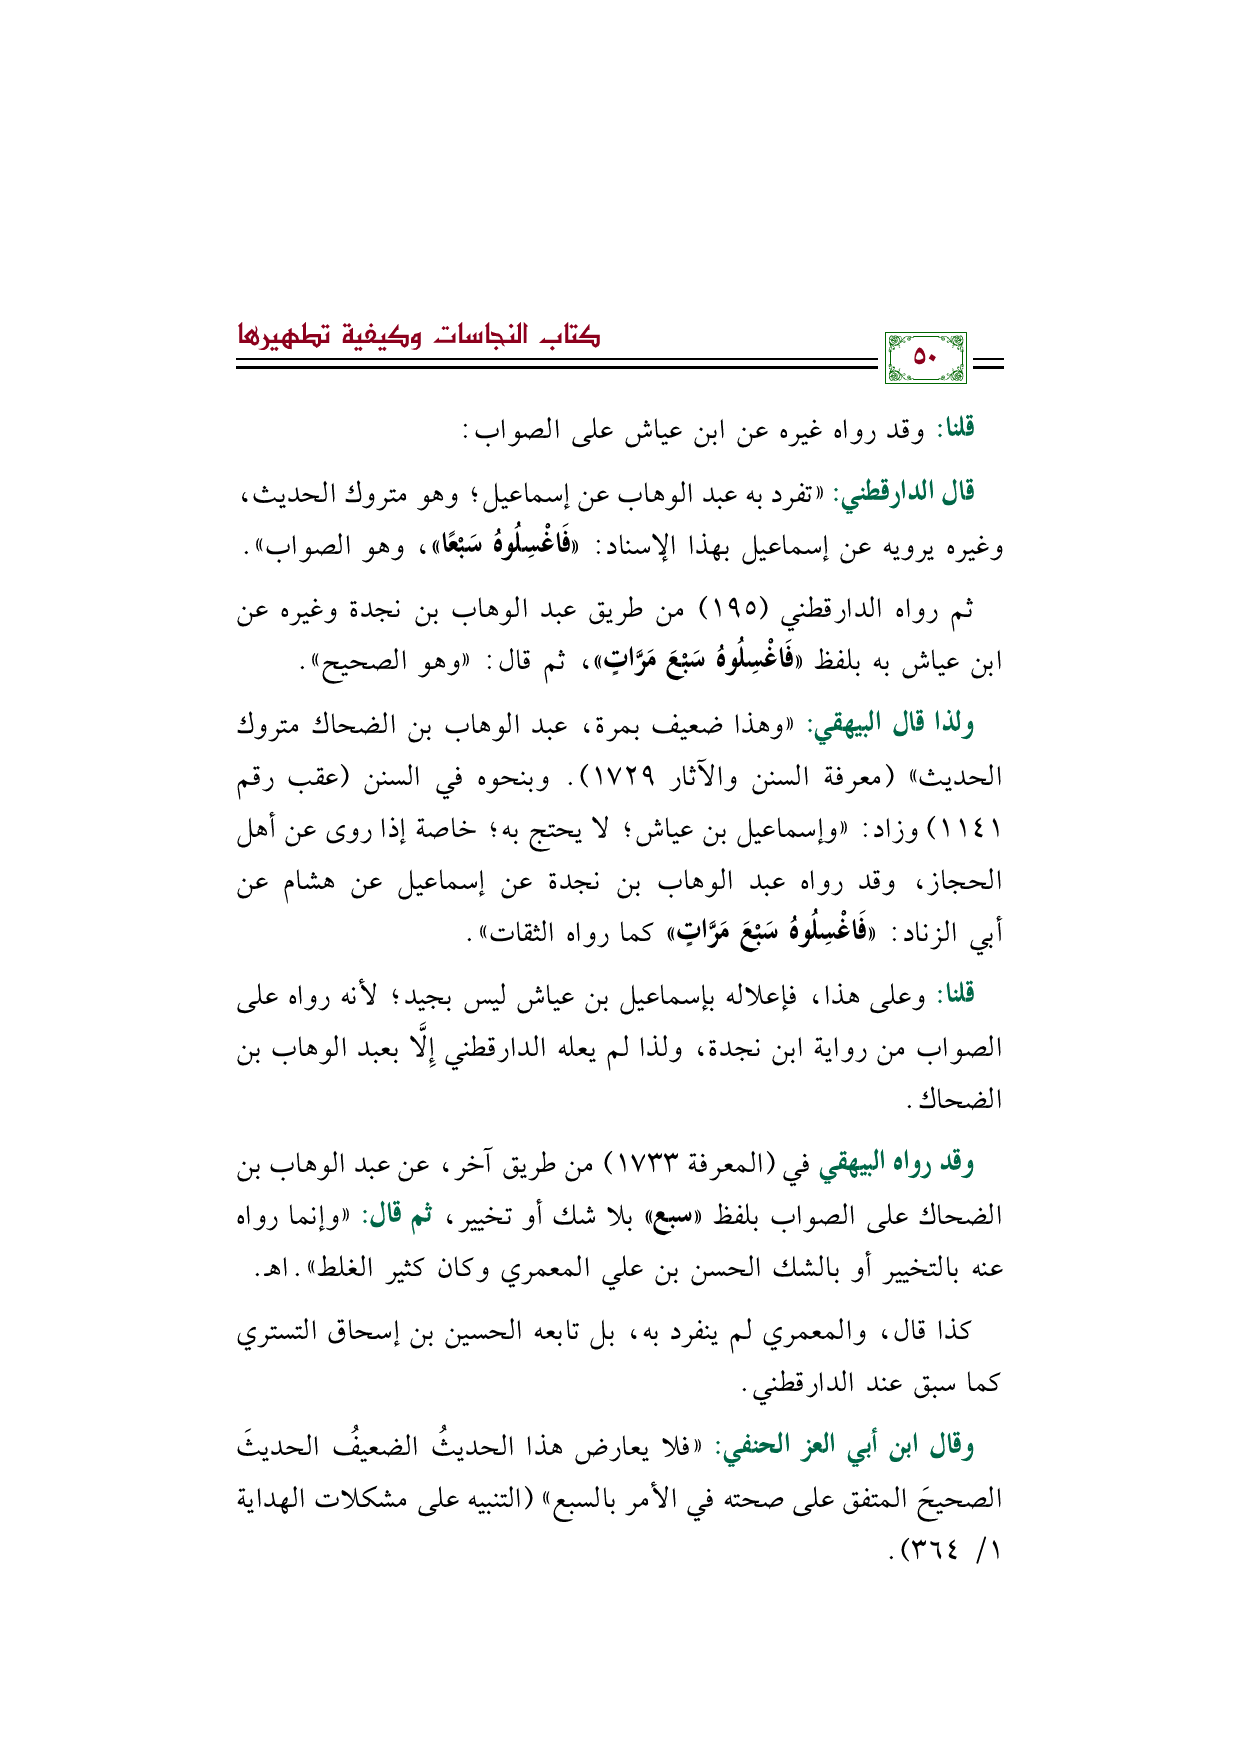 كتاب النجاسات وكيفية تطهيرها
٥٠
قلنا: وقد رواه غيره عن ابن عياش على الصواب:
قال الدارقطني: «تفرد به عبد الوهاب عن إسماعيل؛ وهو متروك الحديث،
وغيره يرويه عن إسماعيل بهذا الإسناد: «فَاغْسِلُوهُ سَبْعًا»، وهو الصواب».
ثم رواه الدارقطني (١٩٥) من طريق عبد الوهاب بن نجدة وغيره عن
ابن عياش به بلفظ «فَاغْسِلُوهُ سَبْعَ مَرَّاتٍ»، ثم قال: «وهو الصحيح».
ولذا قال البيهقي: «وهذا ضعيف بمرة، عبد الوهاب بن الضحاك متروك
الحديث» (معرفة السنن والآثار ١٧٢٩). وبنحوه في السنن (عقب رقم
١١٤١) وزاد: «وإسماعيل بن عياش؛ لا يحتج به؛ خاصة إذا روى عن أهل
الحجاز، وقد رواه عبد الوهاب بن نجدة عن إسماعيل عن هشام عن
أبي الزناد: «فَاغْسِلُوهُ سَبْعَ مَرَّاتٍ» كما رواه الثقات».
قلنا: وعلى هذا، فإعلاله بإسماعيل بن عياش ليس بجيد؛ لأنه رواه على
الصواب من رواية ابن نجدة، ولذا لم يعله الدارقطني إِلَّا بعبد الوهاب بن
الضحاك.
وقد رواه البيهقي في (المعرفة ١٧٣٣) من طريق آخر، عن عبد الوهاب بن
الضحاك على الصواب بلفظ «سبع» بلا شك أو تخيير، ثم قال: «وإنما رواه
عنه بالتخيير أو بالشك الحسن بن علي المعمري وكان كثير الغلط».اهـ.
كذا قال، والمعمري لم ينفرد به، بل تابعه الحسين بن إسحاق التستري
كما سبق عند الدارقطني.
وقال ابن أبي العز الحنفي: «فلا يعارض هذا الحديثُ الضعيفُ الحديثَ
الصحيحَ المتفق على صحته في الأمر بالسبع» (التنبيه على مشكلات الهداية
١/ ٣٦٤).